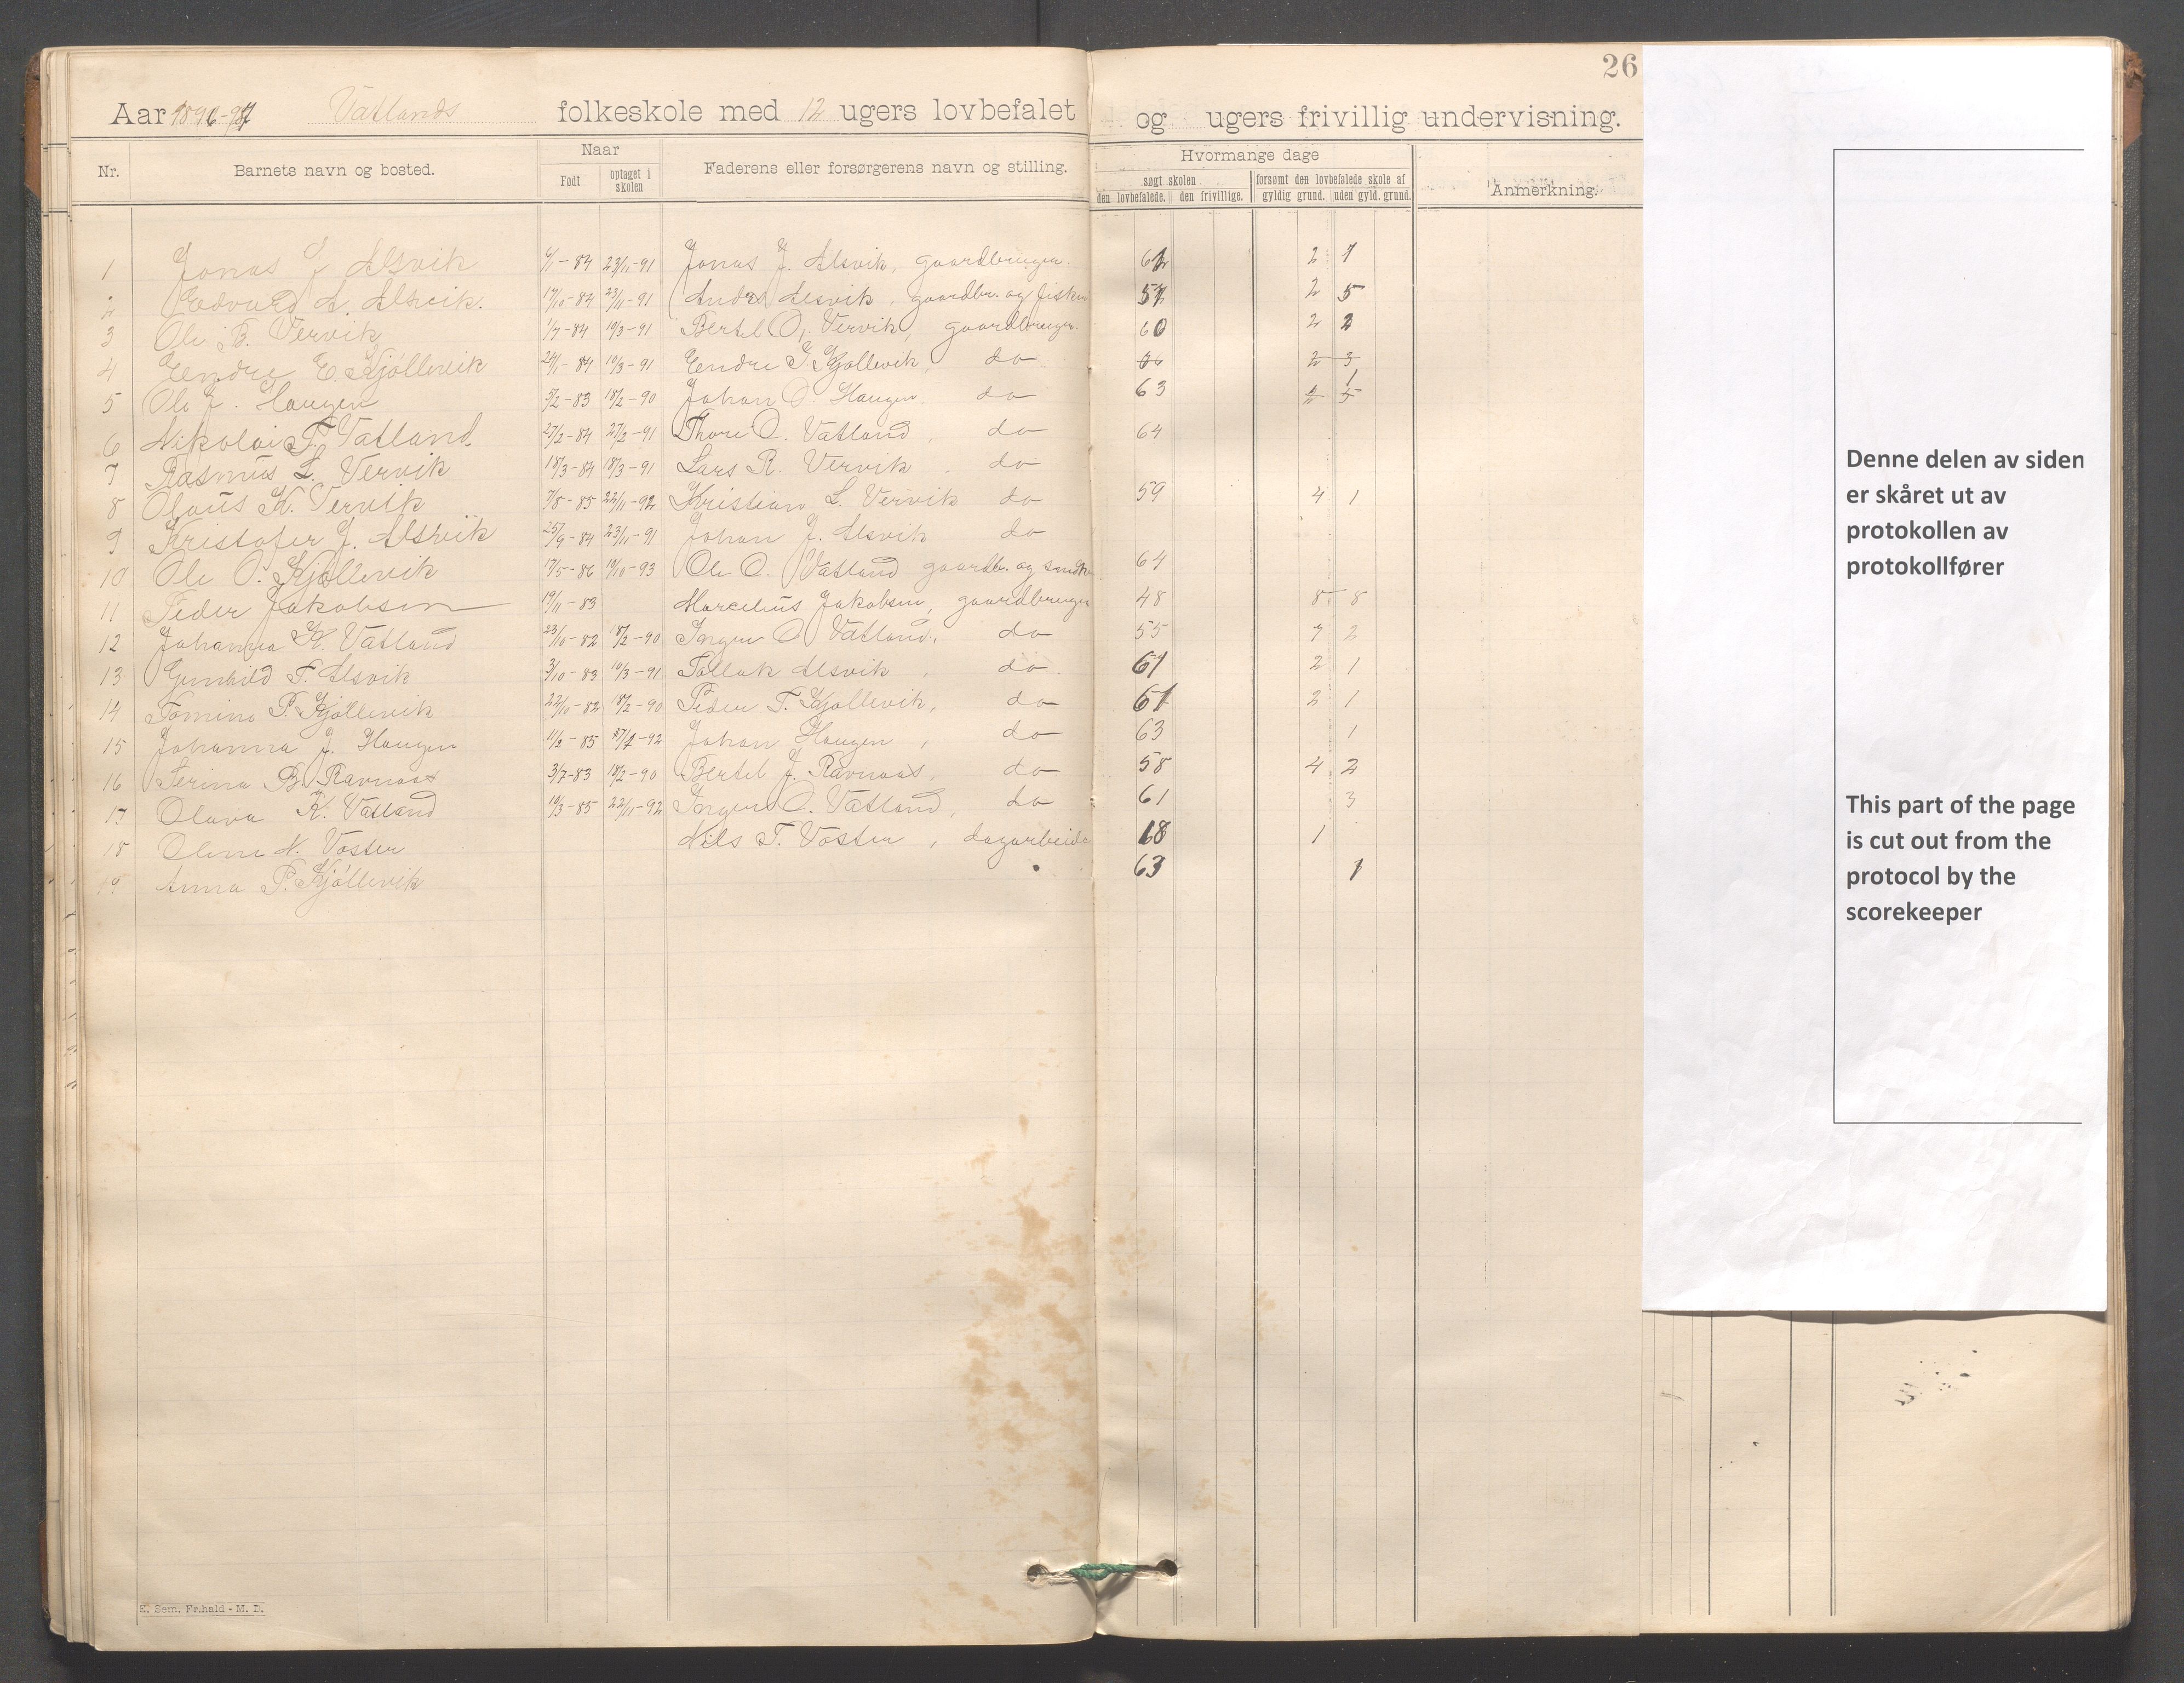 26
Aar 1896-97 Vatlands folkeskole med 12 ugers lovbefalet og ugers frivillig undervisning.
Nr. Barnets navn og bosted. Naar Født optaget i skolen Faderens eller forsørgerens navn og stilling. Hvormange dage søgt skolen. den lovbefalede. den frivillige. forsømt den lovbefalede skole af gyldig grund. uden gyld. grund. Anmerkning.
1 Jonas J Alsvik 6/1-84 23/11-91 Jonas J. Alsvik, gaardbruger. 2 7
2 Edvard A. Alsvik. 17/10-84 23/11-91 Andrs Alsvik, gaardbr. og fisker 2 5
3 Ole B. Vervik 1/7-84 19/3-91 Bertel O. Vervik, gaardbruger. 60 2 2
4 Endre E. Kjøllevik 24/1-84 19/3-91 Endre J. Kjøllevik, do 2 3
5 Ole J. Haugen 5/2-83 18/2-90 Johan O. Haugen. do 63 1
6 Nikolai T. Vatland 27/2-84 27/2-91 Thore O. Vatland, do 64
7 Rasmus L. Vervik 18/3-84 18/3-91 Lars R. Vervik. do
8 Olaus K. Vervik 7/8-85 22/11-92 Kristian L. Vervik do 59 4 1
9 Kristofer J. Alsvik 25/9-84 23/11-91 Johan J. Alsvik do
10 Ole O. Kjøllevik 17/5-86 19/10-93 Ole O. Vatland gaardb. og 64
11 Peder Jakobsen 19/11-83 Marcelius Jakobsen, gaardbruger 48 8 8
12 Johanna K. Vatland 23/10-82 18/2-90 Ingen O Vatland, do 55 7 2
13 Gunhild T. Alsvik 3/10-83 19/3-91 Tollak Alsvik, do 61 2 1
14 Tomine P. Kjøllevik 22/10-82 18/2-90 Peder T. Kjøllevik, do 61 2 1
15 Johanna J. Haugen 11/2-85 Johan Haugen, do 63 1
16 Serina B. Ravnaas 3/7-83 18/2-90 Bertel J. Ravnaas, do 58 4 2
17 Olava K. Vatland 19/3-85 22/11-92 O. Vatland, do 61 3
18 Oline N. Vaster Nils T. Vaster, dagarbeide 68 1
19 Anna P. Kjøllevik 63 1
E. Sem, Fr.hald - M. D.
Denne delen av siden
er skåret ut av
protokollen av
protokollfører
This part of the page
is cut out from the
protocol by the
scorekeeper